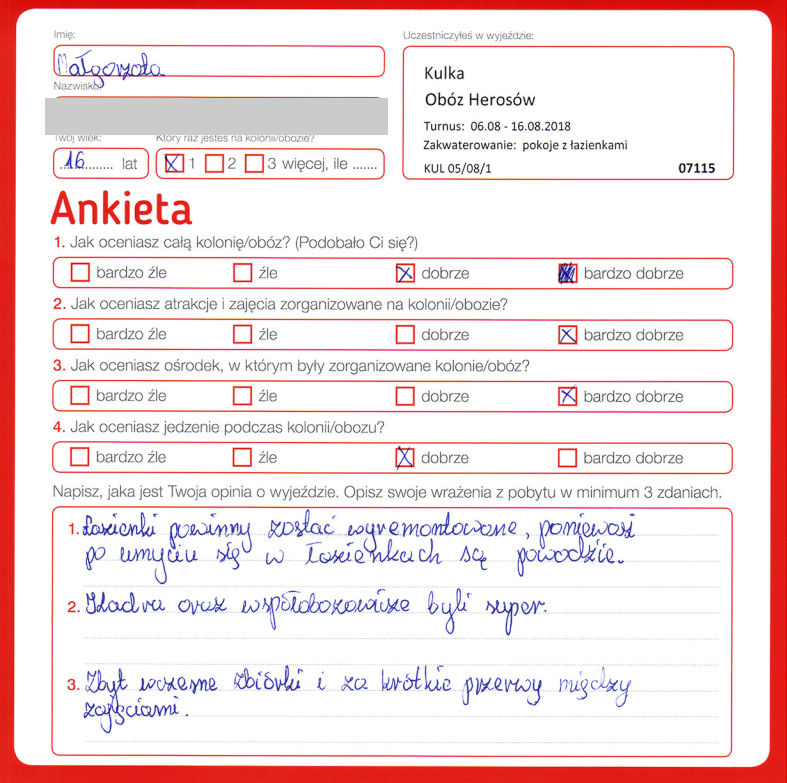 Imię:
Uczestniczyłeś w wyjeździe:
Małgorzata
Kulka
Nazwisko:
Obóz Herosów
Turnus: 06.08 - 16.08.2018
Twój wiek:
Który raz jesteś na kolonii/obozie?
Zakwaterowanie: pokoje z łazienkami
16 lat
1 2 3 więcej, ile .......
KUL 05/08/1 07115
Ankieta
1. Jak oceniasz całą kolonię/obóz? (Podobało Ci się?)
bardzo źle źle dobrze bardzo dobrze
2. Jak oceniasz atrakcje i zajęcia zorganizowane na kolonii/obozie?
bardzo źle źle dobrze bardzo dobrze
3. Jak oceniasz ośrodek, w którym były zorganizowane kolonie/obóz?
bardzo źle źle dobrze bardzo dobrze
4. Jak oceniasz jedzenie podczas kolonii/obozu?
bardzo źle źle dobrze bardzo dobrze
Napisz, jaka jest Twoja opinia o wyjeździe. Opisz swoje wrażenia z pobytu w minimum 3 zdaniach.
1. Łazienki powinny zostać wyremontowane, ponieważ
po umyciu się w łazienkach są powodzie.
2. Kadra oraz współobozowicze byli super.
3. Zbyt wczesne zbiórki i za krótkie przerwy między
zajęciami.